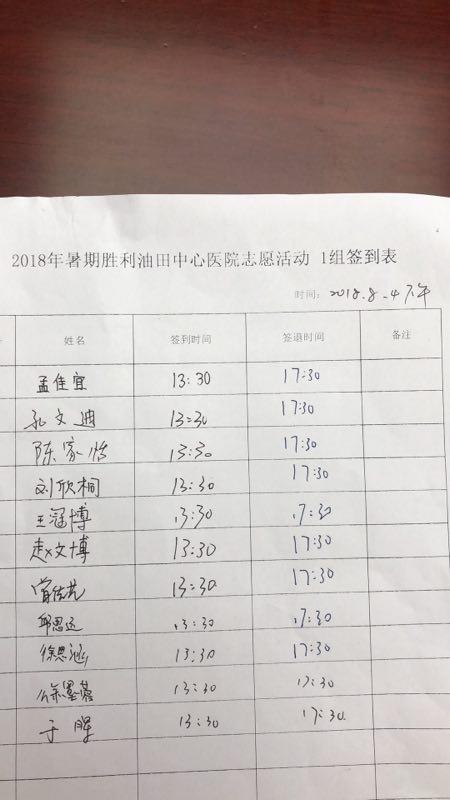 2018年暑期胜利油田中心医院志愿活动 1组签到表
时间: 2018.8.4下午
姓名 签到时间 签退时间 备注
孟佳宜 13:30 17:30
孔文迪 13:30 17:30
陈家怡 13:30 17:30
刘欣桐 13:30 17:30
王冠博 13:30 17:30
赵文博 13:30 17:30
13:30 17:30
邱思远 13:30 17:30
徐思涵 13:30 17:30
徐墨蓉 13:30 17:30
于晖 13:30 17:30